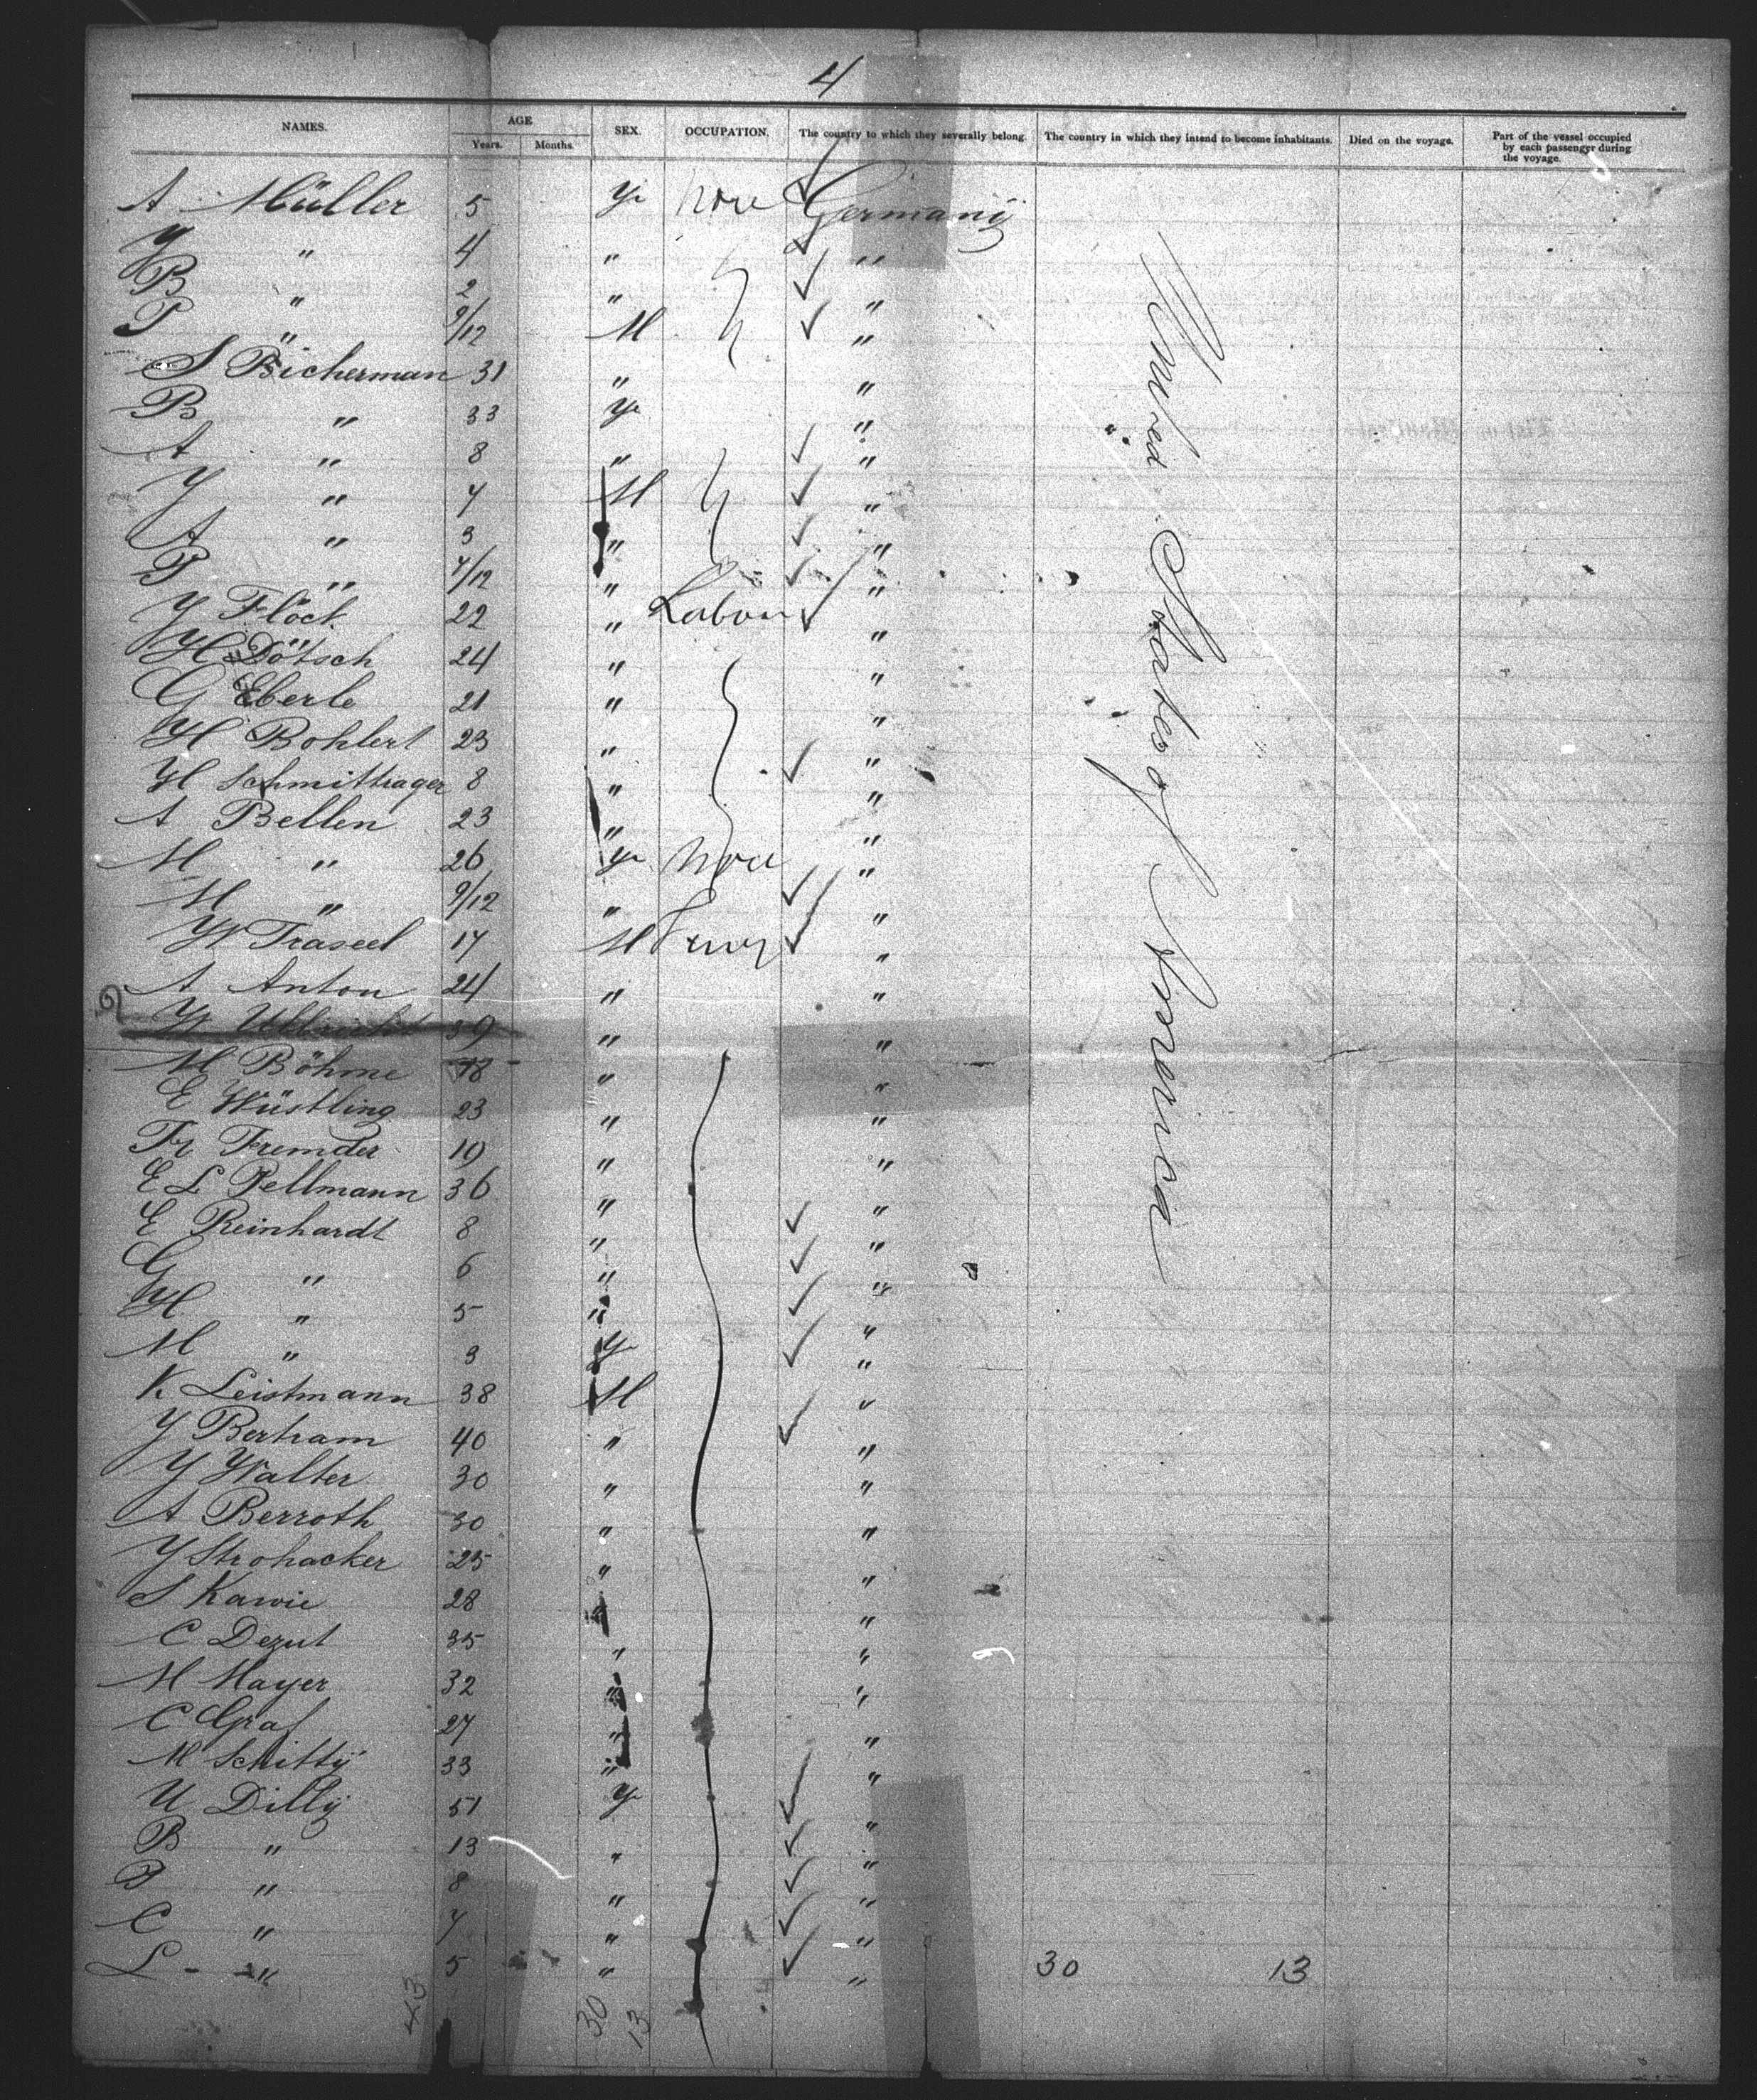 4
NAMES. AGE SEX. OCCUPATION. The country to which they severally belong. The country in which they intend to become inhabitants. Died on the voyage. Part of the vessel occupied by each passenger during the voyage.
Years. Months.
A Müller 5 none Germany
Y " 4 " "
B " 2 " "
P " 9/12 M "
S Bicherman 31 " "
B " 33 "
A " 8 " "
Y " 7 M "
A " 3 " "
P " 7/12 " "
Y Flöck 22 " Labour "
H Dötsch 24 " "
G Eberle 21 " "
H Bohlert 23 " "
H Schmittrager 8 " "
A Bellen 23 " "
M " 26 none "
M " 9/12 " "
W Traseel 17 M "
A Anton 24 " "
W 39 " "
M Böhme 18 " "
E Wüstling 23 " "
Fr Fremder 19 " "
E L Pellmann 36 " "
E Reinhardt 8 " "
G " 6 " "
H " 5 " "
M " 3 "
K Leistmann 38 M "
Y Bertram 40 " "
Y Walter 30 " "
A Berroth 30 " "
Y Strohacker 25 " "
S Kawie 28 " "
C Dezut 35 " "
M Mayer 32 " "
C Graf 27 " "
M Schitty 33 " "
U Dilly 51 "
B " 13 " "
P " 8 " "
C " 7 " "
L " 5 " "
United States of America
30 13
43 30 13